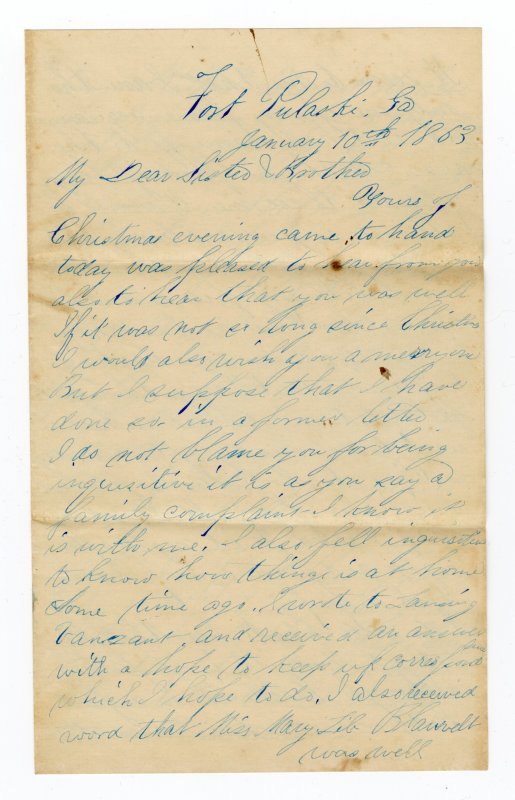 Fort Pulaski. Ga
January 10th 1863
My Dear Sister & Brother
Yours of
Christmas evening came to hand
today was pleased to hear from you
also to hear that you was well
If it was not so long since Christm
I would also wish you a merry one
But I suppose that I have
done so in a former letter
I do not blame you for being
inquisitive it is as you say a
family complaint I know it
is with me. I also fell inquisitive
to know how things is at home
Some time ago. I wrote to Lansing
Vanzant. and received an answer
with a hope to keep up correspond
which I hope to do. I also received
word that Miss Mary Lib Blauvelt
was well